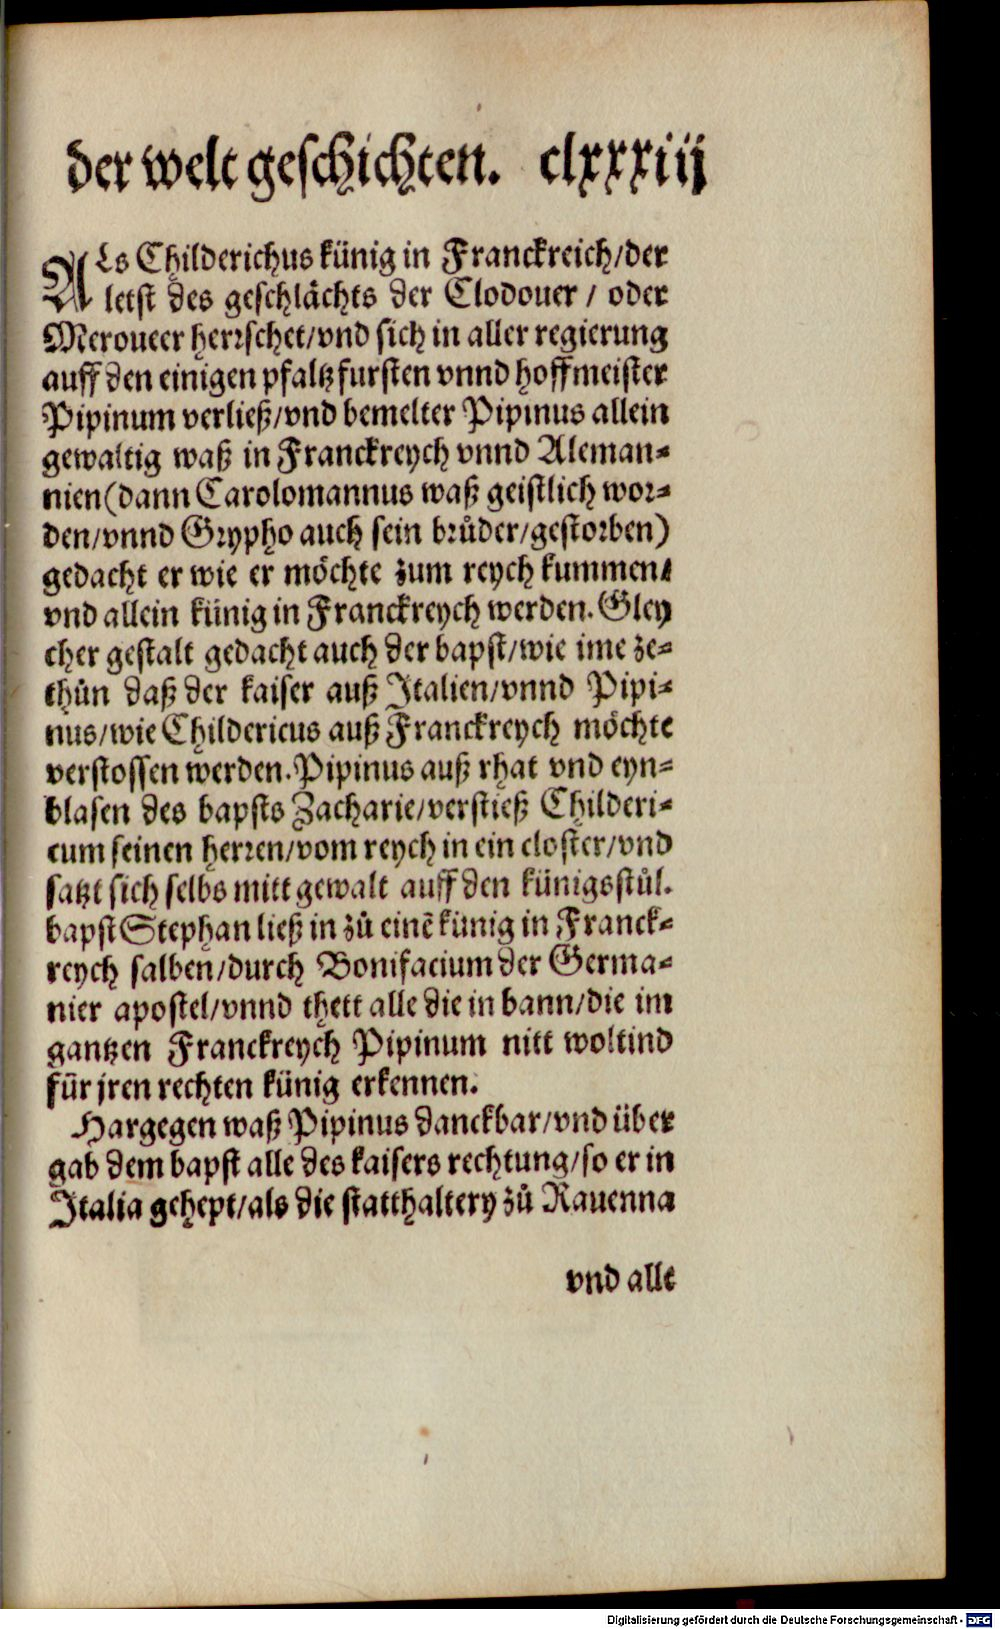 der welt geschichten. clxxxiij
ALs Childerichus künig in Franckreich/der
letst des geschlächts der Clodouer / oder
Meroueer herrschet/vnd sich in aller regierung
auff den einigen pfaltzfursten vnnd hoffmeister
Pipinum verließ/vnd bemelter Pipinus allein
gewaltig waß in Franckreych vnnd Aleman-
nien(dann Carolomannus waß geistlich wor-
den/vnnd Grypho auch sein brůder/gestorben)
gedacht er wie er möchte zum reych kummen/
vnd allein künig in Franckreych werden. Gley
cher gestalt gedacht auch der bapst/wie ime ze-
thůn daß der kaiser auß Italien/vnnd Pipi-
nus/wie Childericus auß Franckreych möchte
verstossen werden. Pipinus auß rhat vnd eyn-
blasen des bapsts Zacharie/verstieß Childeri-
cum seinen herren/vom reych in ein closter/vnd
satzt sich selbs mitt gewalt auff den künigsstůl.
bapst Stephan ließ in zů einē künig in Franck-
reych salben/durch Bonifacium der Germa-
nier apostel/vnnd thett alle die in bann/die im
gantzen Franckreych Pipinum nitt woltind
für jren rechten künig erkennen.
Hargegen waß Pipinus danckbar/vnd über
gab dem bapst alle des kaisers rechtung/so er in
Italia gehept/als die statthaltery zů Rauenna
vnd alle
Digitalisierung gefördert durch die Deutsche Forschungsgemeinschaft - DFG